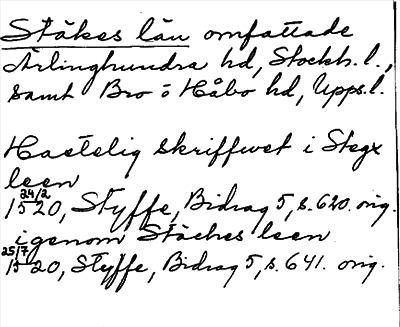 Stäkes län omfattade
Ärlinghundra hd, Stockh. l.,
samt Bro o Håbo hd, Upps. l.
Hastelig skriffwet i Stegx
leen
24/2 1520, Styffe, Bidrag 5, s. 620. orig.
igenom Stäches leen
25/7 1520, Styffe, Bidrag 5, s. 641. orig.